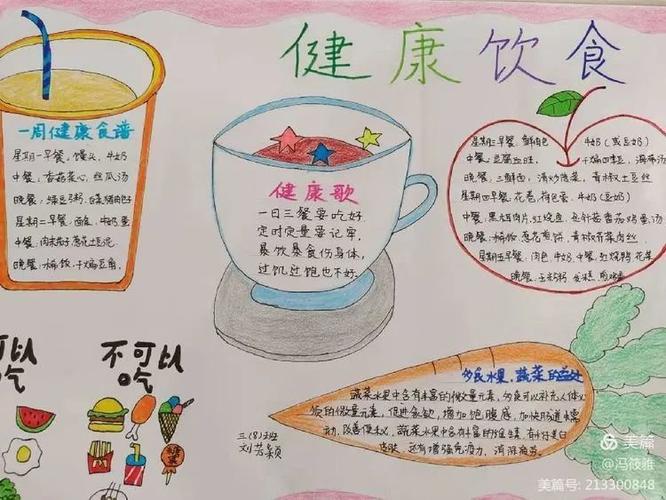 健康饮食
一周健康食谱
星期一早餐、馒头、牛奶
中餐、香菇菜心、丝瓜汤
晚餐、绿豆粥
星期二早餐、面条、牛奶、蛋
中餐、
晚餐、稀饭、干煸豆腐。
健康歌
一日三餐要吃好,
定时定量要记牢,
暴饮暴食伤身体,
过饥过饱也不好。
星期三早餐、鲜肉包 牛奶(或豆奶)
中餐、豆腐血旺、干煸四季豆、海带汤
晚餐、三鲜面、清炒时蔬、青椒土豆丝
星期四早餐、花卷、荷包蛋、牛奶(豆奶)
中餐、黑木耳肉片、红烧鱼、金针菇番茄鸡蛋汤
晚餐、稀饭、葱花煎饼、青椒芹菜肉丝
星期五早餐、肉包、牛奶、中餐、红烧鸭、花菜
晚餐、玉米粥、
多食水果、蔬菜的益处
蔬菜水果中含有丰富的微量元素,多食可以补充人体必
须的微量元素,促进食欲,增加饱腹感,加快肠道蠕
动,改善便秘。蔬菜水果中含有丰富的维生素,有好美白
皮肤,还有增强免疫力、消除疲劳。
可以
吃
不可以
吃
三(8)班
刘芳颖
美篇
@冯筱雅
美篇号: 213300848